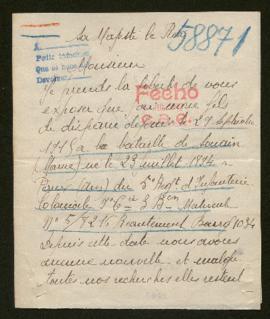 Sa Majesté le Roi
58871
A
Monsieur
Je prends la liberté de vous
exposer que mon fils
disparu depuis le 29 septembre
1915 a la bataille de Souain
(Marne) né le 23 juillet 1894 a
du 5e Regt d'Infanterie
Coloniale 3 Bon Matricule
No 5/7215 Recrutement 1034
Depuis cette date nous avons
aucune nouvelle et malgré
toutes nos recherches elles restent